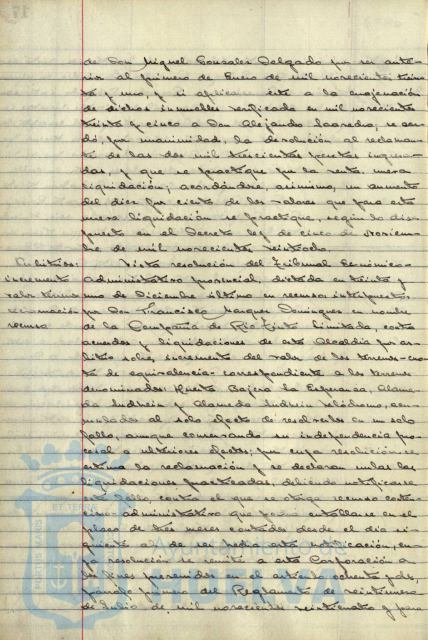 de Don Miguel Gonzalez Delgado por ser ante-
rior al primero de Enero de mil novecientos trein-
ta y uno, y si aplicar este a la enajenación
de dichos inmuebles verificada en mil novecientos
treinta y cinco a Don Alejandro Laoredo, se acor-
dó, por unanimidad, la devolución al reclaman-
te de las dos mil trescientas pesetas ingresa-
das, y que se practique por la venta nueva
liquidación; acordándose, asimismo, un aumento
del diez por ciento de los valores que para esta
nueva liquidación se practique, según lo dis-
puesto en el Decreto ley de cinco de Noviem-
bre de mil novecientos veintiocho.
Arbitrios:
incremento
valor terrenos
reclamación
recurso
Vista resolución del Tribunal Económico-
administrativo provincial, dictada en treinta y
uno de Diciembre último en recurso interpuesto
por Don Francisco Marquez Dominguez en nombre
de la Compañía de Rio Tinto Limitada, contra
acuerdos y liquidaciones de esta Alcaldía por ar-
bitrio sobre incremento del valor de los terrenos-cuo-
ta de equivalencia-correspondiente a los terrenos
denominados: Huerto Bajero la Esperanza, Alame-
da Sundheim y Alameda Sundheim Velódromo, acu-
mulados al solo efecto de resolverlos en un solo
fallo, aunque conservando su independencia pro-
cesal a ulteriores efectos; por cuya resolución se
estima la reclamación y se declaran nulas las
liquidaciones practicadas, debiendo notificarse
este fallo, contra el que se otorga recurso conten-
cioso-administrativo que podrá entablarse en el
plazo de tres meses contados desde el día si-
guiente al de ser hecha esta notificación, cu-
ya resolución se remite a esta Corporación a
los fines prevenidos en el artículo ochenta y dos,
párrafo primero del Reglamento de veintinueve
de Julio de mil novecientos veinticuatro y para
Ayuntamiento de